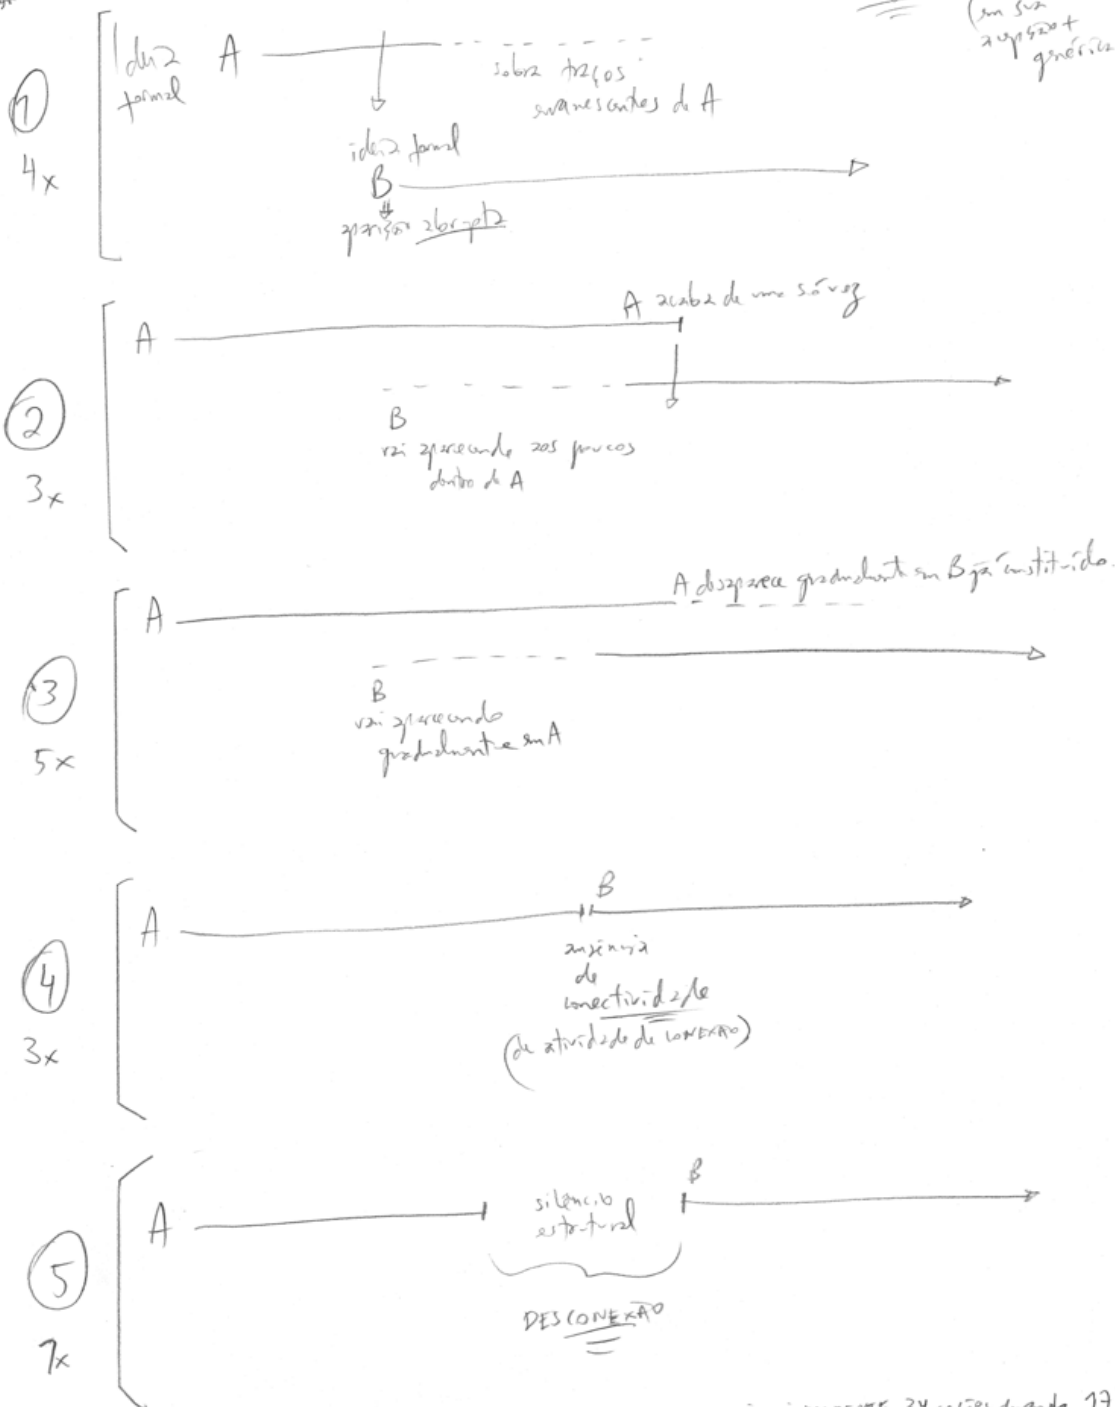 (em sua
acepção +
genérica
1
4x
Ideia
formal
A
sobra traços
evanescentes de A
ideia formal
B
aparição abrupta
2
3x
A
A acaba de uma só vez
B
vai aparecendo aos poucos
dentro de A
3
5x
A
A desaparece gradualmente em B já constituído.
B
vai aparecendo
gradualmente em A
4
3x
A
B
ausência
de
conectividade
(de atividade de CONEXÃO)
5
7x
A
silêncio
estrutural
B
DESCONEXÃO
17